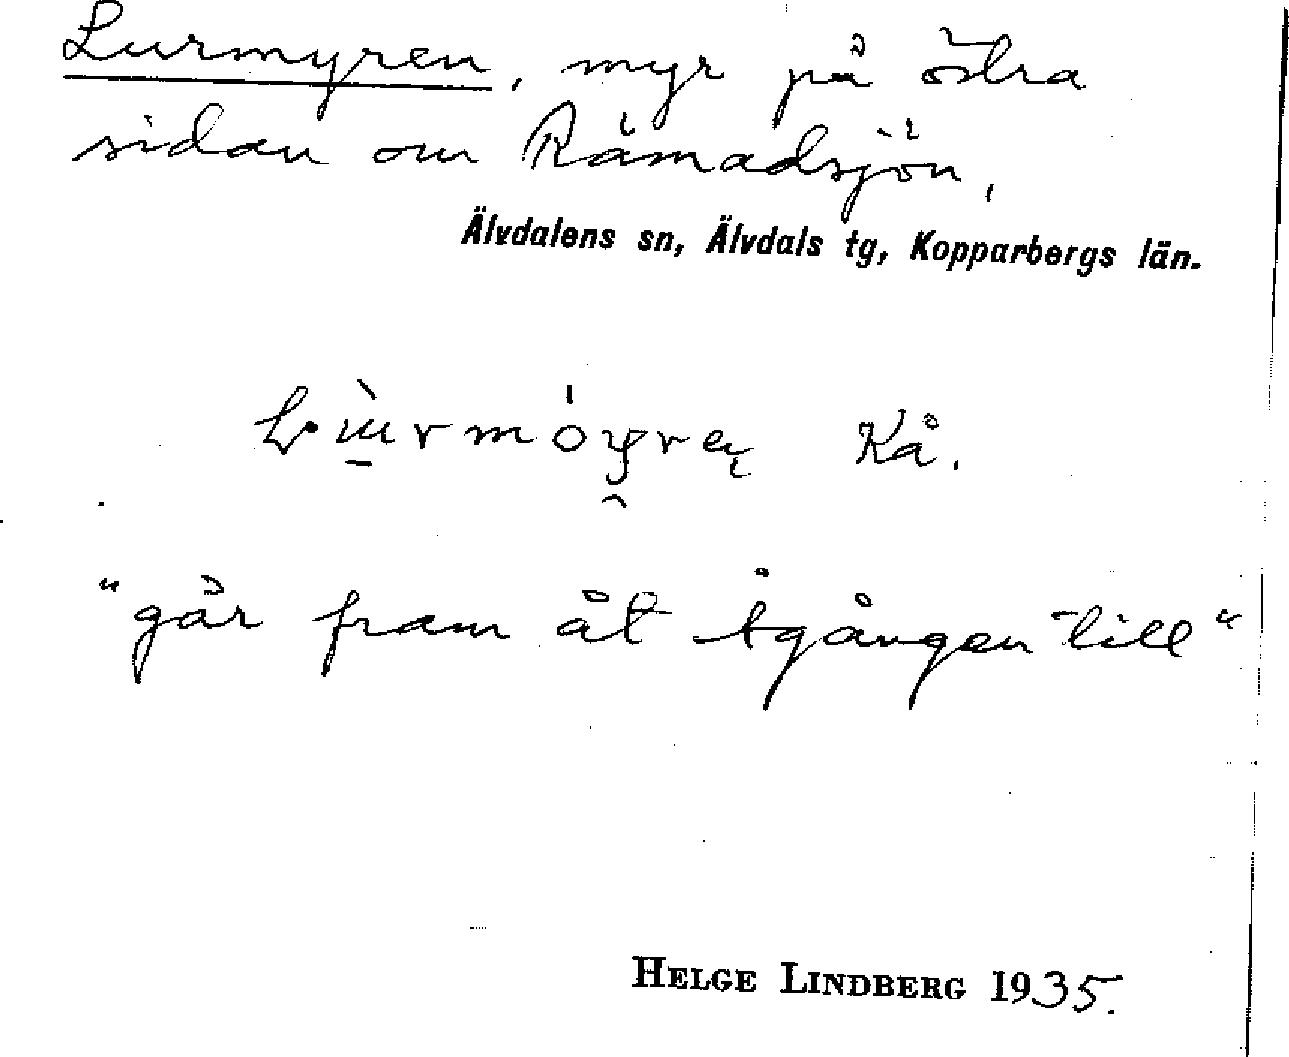 Lurmyren, myr på östra
sidan om Råmadsjön,
Älvdalens sn, Älvdals tg, Kopparbergs län.
Kå.
"går fram åt Ågången till"
HELGE LINDBERG 1935.